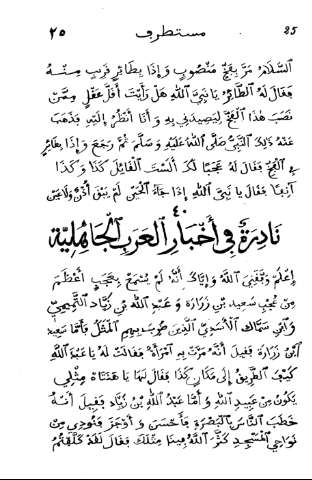 25 مستطرف ٢٥
السَّلَامُ مَرَّ بِفَخٍّ مَنْصُوبٍ وَإِذَا بِطَائِرٍ قَرِيبٍ مِنْهُ
فَقَالَ لَهُ الطَّائِرُ يَا نَبِيَّ اللَّهِ هَلْ رَأَيْتَ أَقَلَّ عَقْلٍ مِمَّنْ
نَصَبَ هٰذَا الْفَخَّ لِيَصِيدَنِي بِهِ وَأَنَا أَنْظُرُ إِلَيْهِ فَذَهَبَ
عَنْهُ ذٰلِكَ النَّبِيُّ صَلَّى اللَّهُ عَلَيْهِ وَسَلَّمَ ثُمَّ رَجَعَ وَإِذَا بِطَائِرٍ
فِي الْفَخِّ فَقَالَ لَهُ عَجَبًا لَكَ أَلَسْتَ الْقَائِلَ كَذَا وَكَذَا
آنِفًا فَقَالَ يَا نَبِيَّ اللَّهِ إِذَا جَاءَ الْحَيْنُ لَمْ يَبْقَ أُذُنٌ وَلَا عَيْنٌ
٤٠
نَادِرَةٌ فِي أَخْبَارِ الْعَرَبِ الْجَاهِلِيَّةِ
اِعْلَمْ وَفَّقَنِيَ اللَّهُ وَإِيَّاكَ أَنَّهُ لَمْ يُسْمَعْ بِعَجَبٍ أَعْظَمَ
مِنْ عُجْبِ سَعِيدِ بْنِ زُرَارَةَ وَعَبْدِ اللَّهِ بْنِ زِيَادٍ التَّمِيمِيِّ
وَابْنِ سِمَاكٍ الْأَسَدِيِّ الَّذِينَ ضُرِبَ بِهِمِ الْمَثَلُ فَأَمَّا سَعِيدُ
ابْنُ زُرَارَةَ فَقِيلَ أَنَّهُ مَرَّتْ بِهِ امْرَأَةٌ فَقَالَتْ لَهُ يَا عَبْدَ اللَّهِ
كَيْفَ الطَّرِيقُ إِلَى مَكَانِ كَذَا فَقَالَ لَهَا يَا هَنْتَاهُ مِثْلِي
يَكُونُ مِنْ عَبِيدِ اللَّهِ وَأَمَّا عَبْدُ اللَّهِ بْنُ زِيَادٍ فَقِيلَ أَنَّهُ
خَطَبَ النَّاسَ بِالْبَصْرَةِ فَأَحْسَنَ وَأَوْجَزَ فَنُودِيَ مِنْ
نَوَاحِي الْمَسْجِدِ كَثَّرَ اللَّهُ فِينَا مِثْلَكَ فَقَالَ لَقَدْ كَلَّفْتُمُ